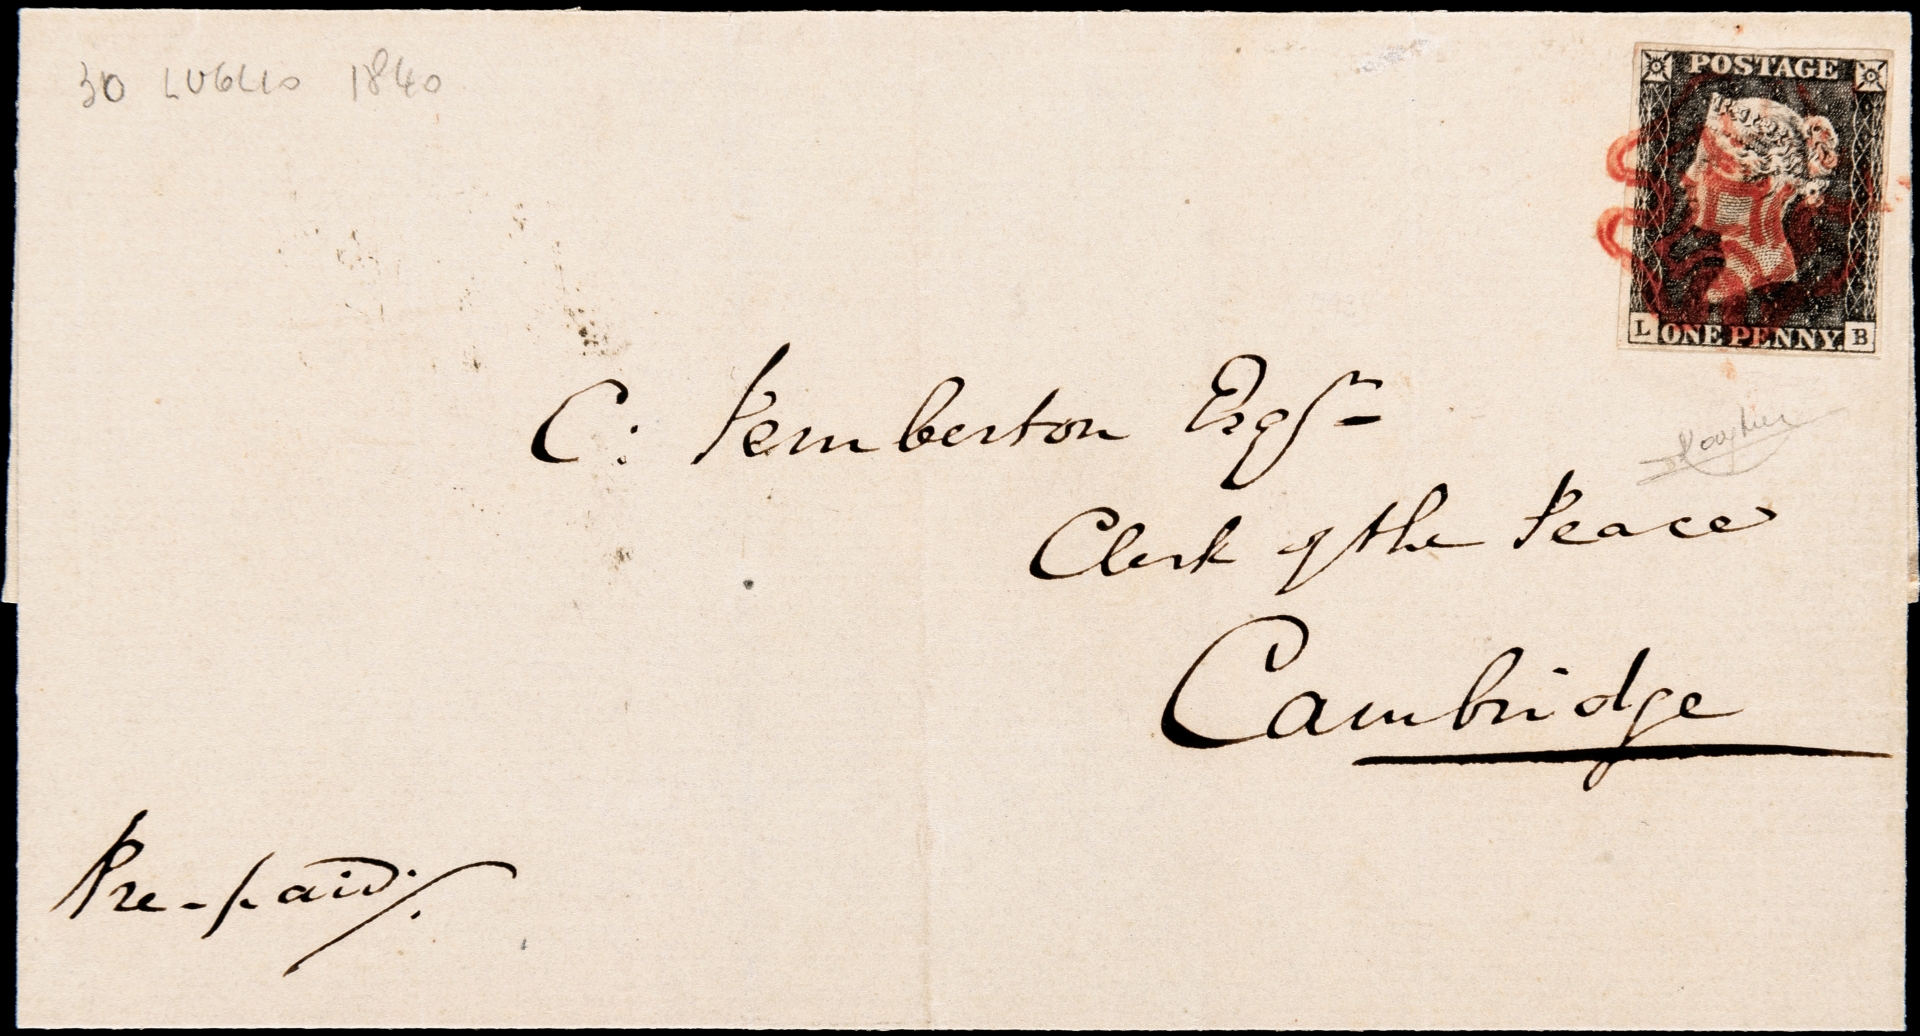 30 LUGLIO 1840
POSTAGE
ONE PENNY
L B
C: Pemberton Esqr
Clerk of the Peace
Cambridge
Pre-paid